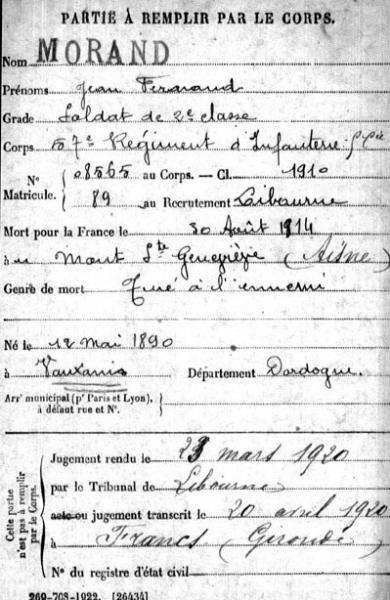 PARTIE À REMPLIR PAR LE CORPS.
Nom MORAND
Prénoms Jean Fernand
Grade Soldat de 2e classe
Corps 57e Régiment d'Infanterie
No Matricule. 08565 au Corps. — Cl. 1910
89 au Recrutement Libourne
Mort pour la France le 30 Août 1914
à au Mont Ste Geneviève (Aisne)
Genre de mort Tué à l'ennemi
Né le 12 Mai 1890
à Vauxanis Département Dordogne.
Arrt municipal (pr Paris et Lyon),
à défaut rue et No.
Cette partie n'est pas à remplir par le Corps.
Jugement rendu le 23 mars 1920
par le Tribunal de Libourne
acte ou jugement transcrit le 20 avril 1920
à Francs (Gironde)
No du registre d'état civil
269-708-1922. [26434]